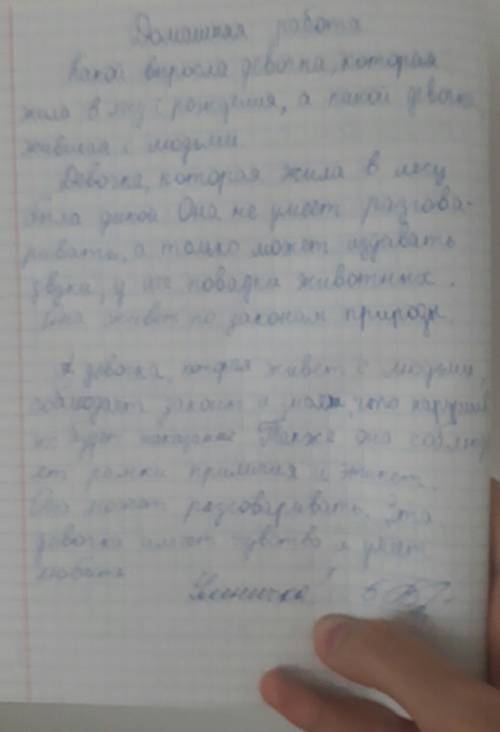 Домашняя работа
Какой выросла девочка, которая
жила в лесу с рождения, а какой девочка
жившая с людьми.
Девочка, которая жила в лесу
была дикой Она не умеет разгова-
ривать, а только может издавать
звуки, у неё повадки животных.
Она живёт по законам природы.
девочка, которая живёт с людьми
соблюдает законы и
же будет наказание Также она соблюд
ет рамки приличия и этикет.
Она может разговаривать. Эта
девочка имеет чувство и умеет
любить